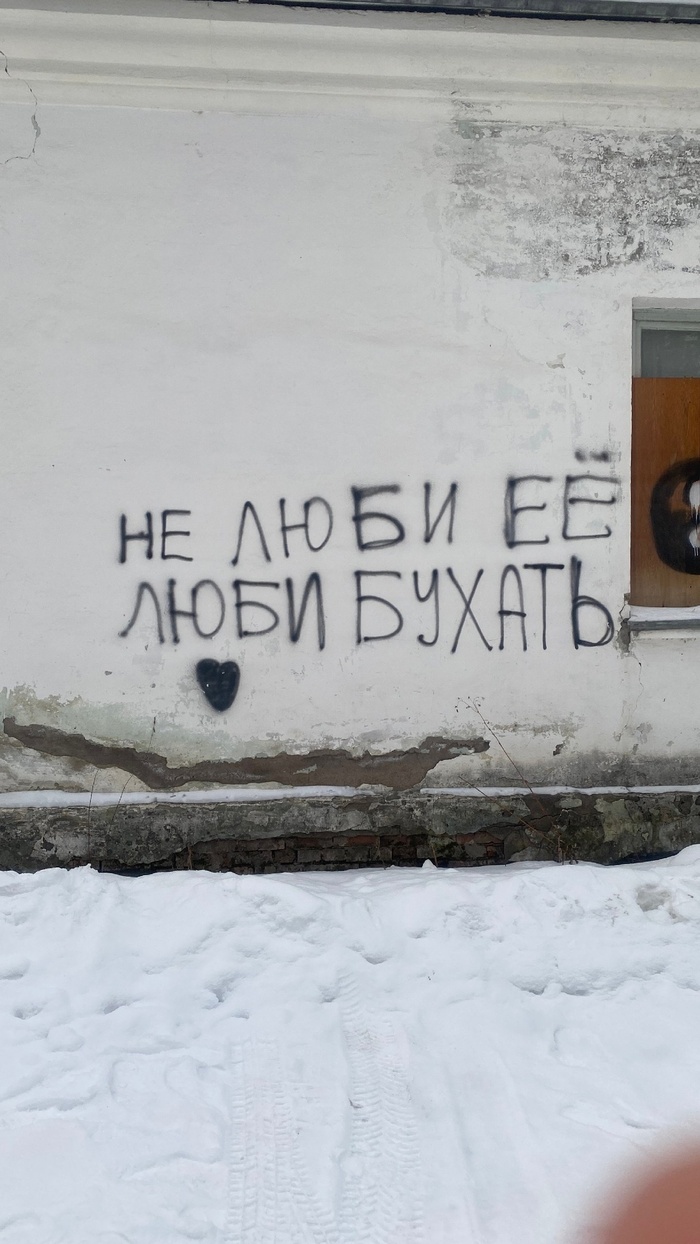 НЕ ЛЮБИ ЕЁ
ЛЮБИ БУХАТЬ